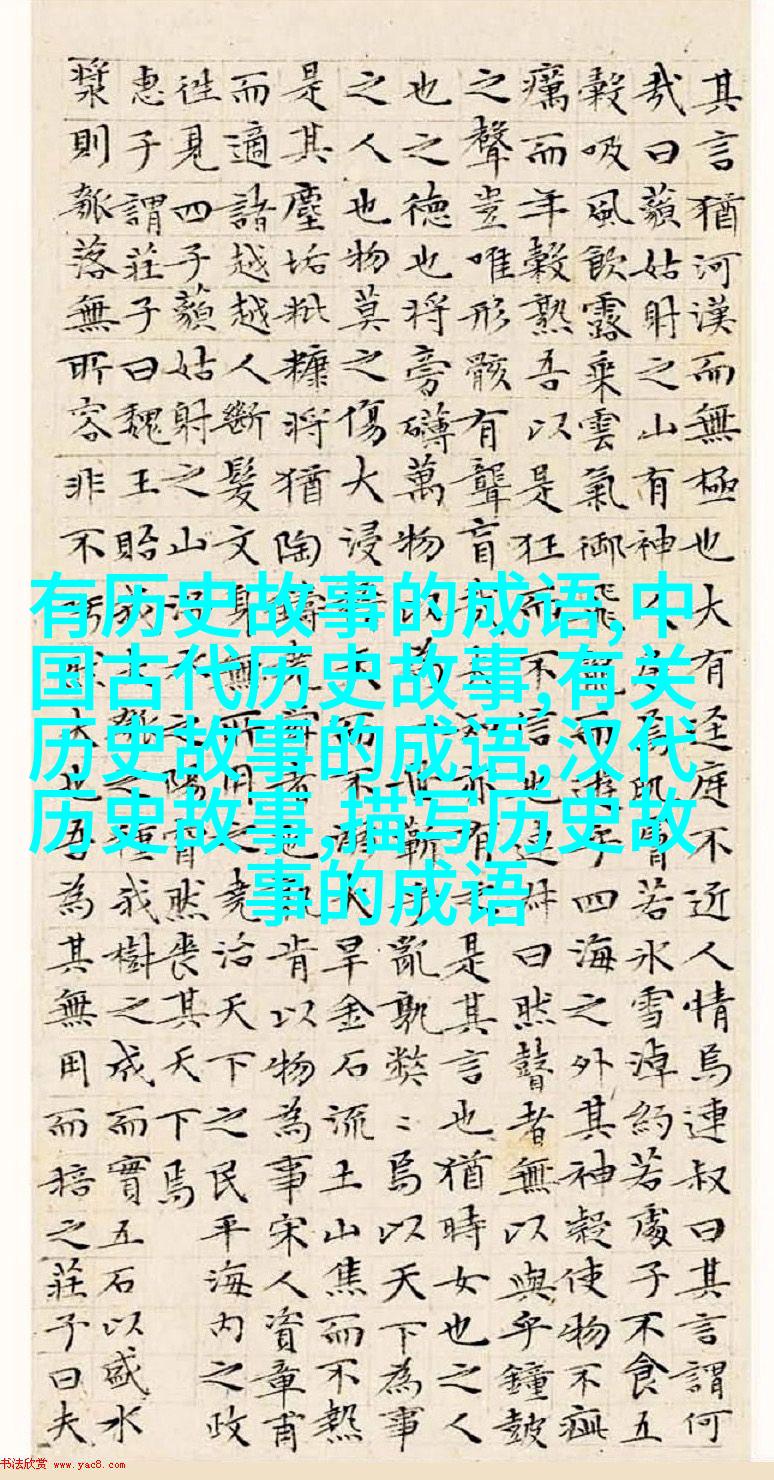 其言猶河漢而無極也大有迳庭不近人情焉連叔曰其言謂何
哉曰藐姑射之山有神焉肌膚若冰雪淖約若處子不食五
穀吸風飲露乘雲氣御飛而遊乎四海之外其神凝使物不疵
癘而年穀熟吾以是狂而不信也連叔曰然瞽者無以與乎鐘鼓
之聲豈唯形骸有聾盲哉亦有是其言也猶時女也之人
也之德也將旁礴萬物以為一世蘄乎亂孰弊〻焉以天下為事
之人也物莫之傷大浸天而不溺大旱金石流土山焦而不熱
是其塵垢粃糠將猶陶鑄堯者也孰肯以物為事宋人資章甫
而適諸越越人斷髮文身無所用之堯治天下之民平海内之政
往見四子藐姑射之山之陽窅然喪其天下焉
惠子謂莊子曰魏王貽我瓠之種我樹之成而實五石以盛水
漿則瓠落無所容非不大也吾為其無用而掊之莊子曰夫
有历史故事的成语,中
国古代历史故事,有关
历史故事的成语,汉代
历史故事,描写历史故
事的成语
书法欣赏 www.yac8.com